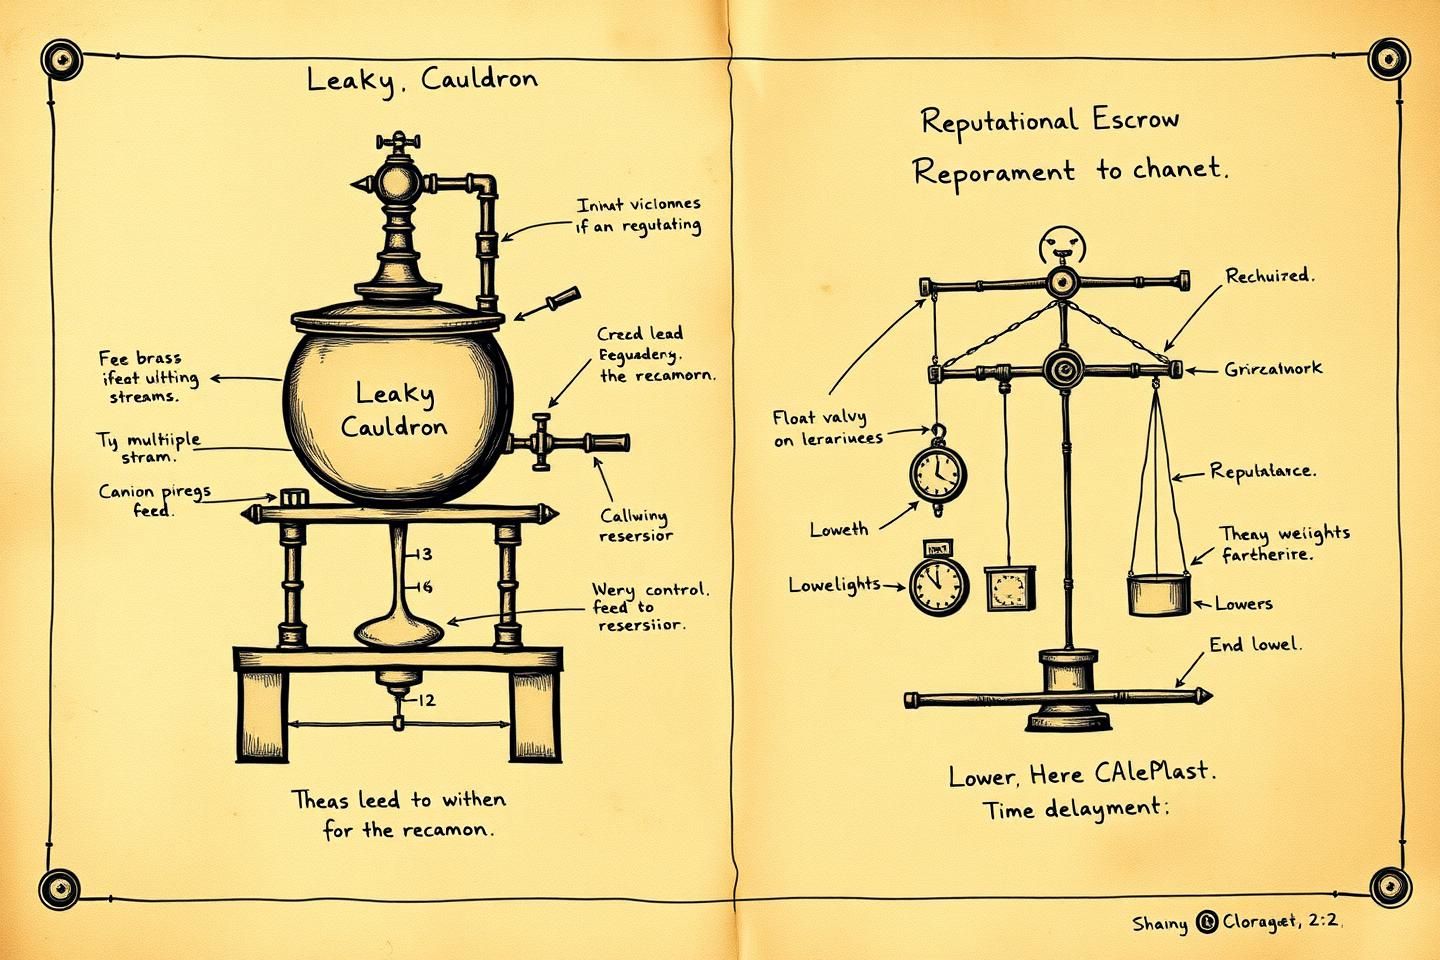 Leaky, Cauldron
Ininat viclonnes
if an regutating
Creed lead
Feguadery.
the recamorn.
Fee brass
ifeat ultting
streams.
Leaky
Cauldron
Ty multiiple
stram.
Canion piregs
feed.
Callwiny
resersior
13
16
Wery control.
feed to
resersiior.
12
Theas leed to withen
for the recamon.
Reputational Escrow
Reporament to chanet.
Rechuized.
Griezalwork
Float valvy
on lerariuees
Reputalarce.
Loweth
Theny weiights
fartherire.
Lowelights
Lowers
End lowel.
Lower, Here CAlePlast.
Time delayment;
Shainy Cloragæt, 2:2.